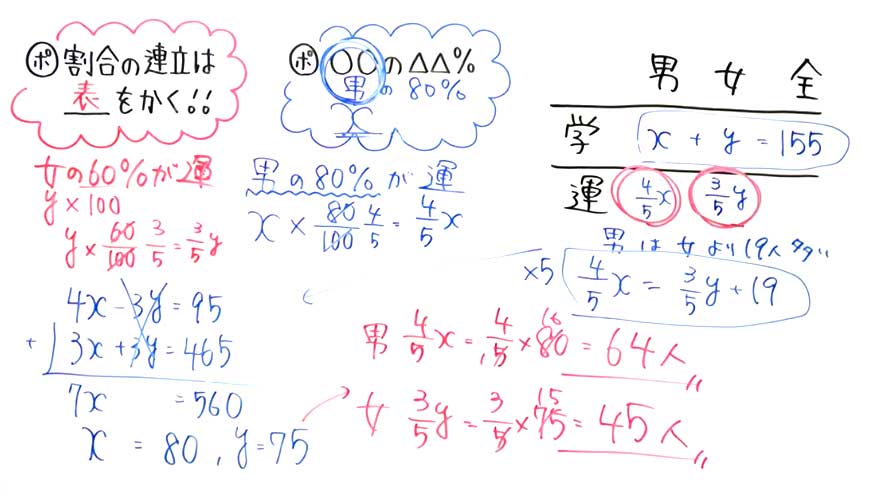 ポ 割合の連立は
表をかく!!
ポ ○○の△△%
男の80%
男 女 全
学 x + y = 155
運 4/5x 3/5y
男は女より19人多い
×5 4/5x = 3/5y + 19
女の60%が運
y × 100
y × 60/100 3/5 = 3/5y
男の80%が運
x × 80/100 4/5 = 4/5x
4x - 3y = 95
+) 3x + 3y = 465
7x = 560
x = 80, y = 75
男 4/5x = 4/5 × 80 16 = 64人
女 3/5y = 3/5 × 75 15 = 45人